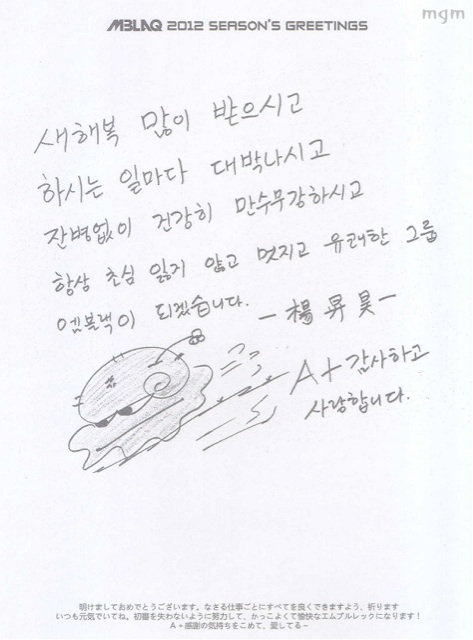 MBLAQ 2012 SEASON'S GREETINGS
mgm
새해복 많이 받으시고
하시는 일마다 대박나시고
잔병없이 건강히 만수무강하시고
항상 초심 잃지 않고 멋지고 유쾌한 그룹
엠블랙이 되겠습니다.
- 楊 昇 昊 -
A+ 감사하고
사랑합니다.
明けましておめでとうございます。なさる仕事ごとにすべてを良くできますよう、祈ります
いつも元気でいてね。初審を失わないように努力して、かっこよくて愉快なエムブルレックになります！
A+感謝の気持ちをこめて、愛してる～